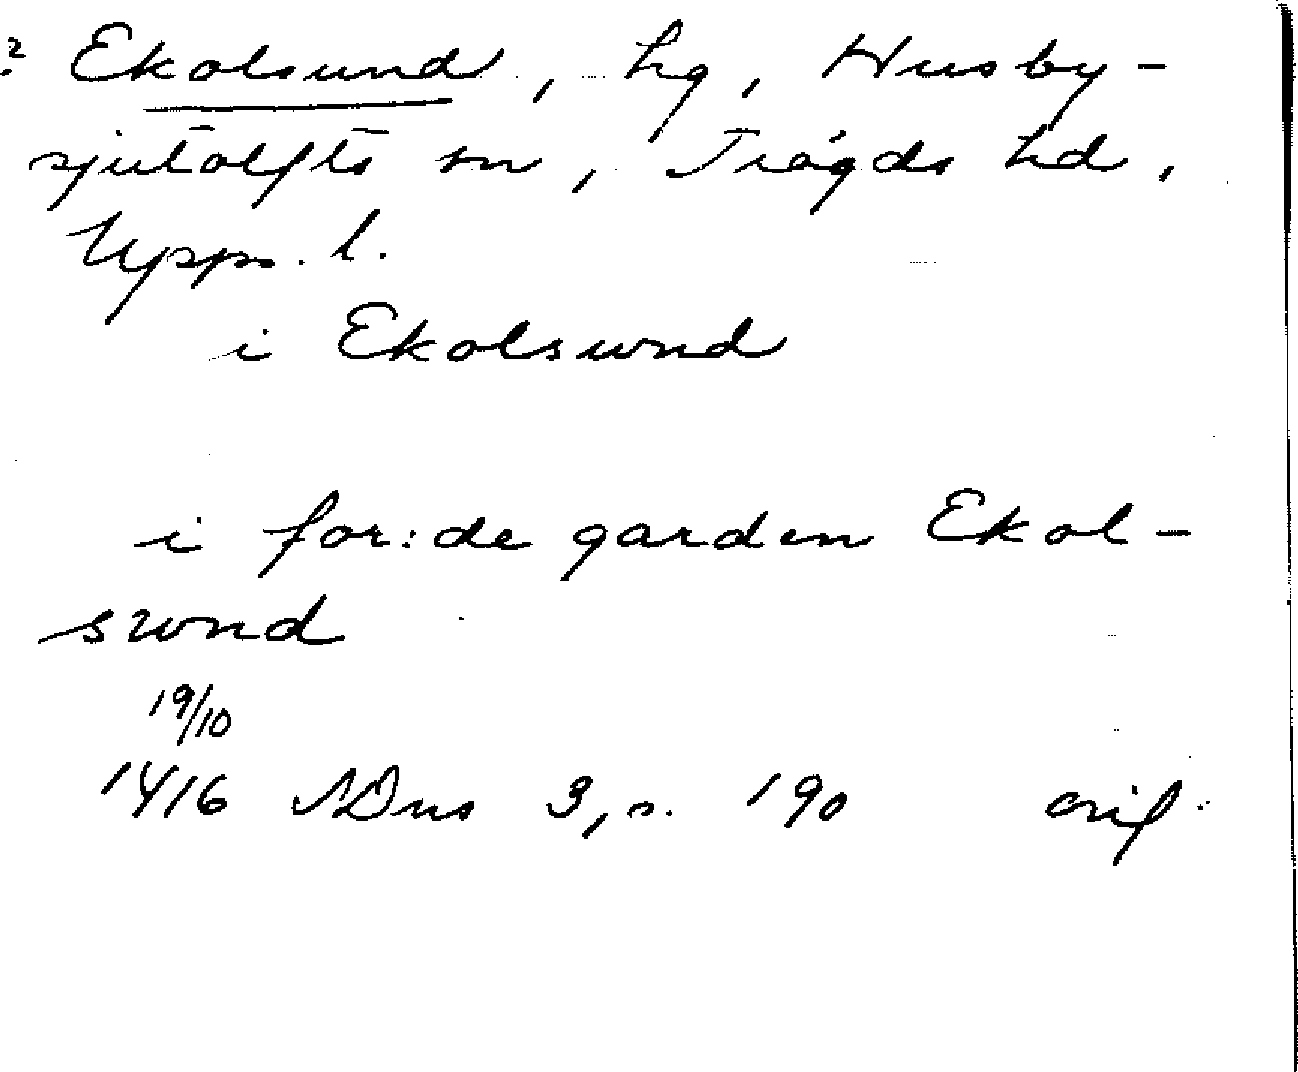 ? Ekolsund, hg, Husby-
sjutolfts sn, Trögds hd,
Upps. l.
i Ekolsund
i for:de garden Ekol-
swnd
19/10
1416 SDns 3, s. 190 orig.